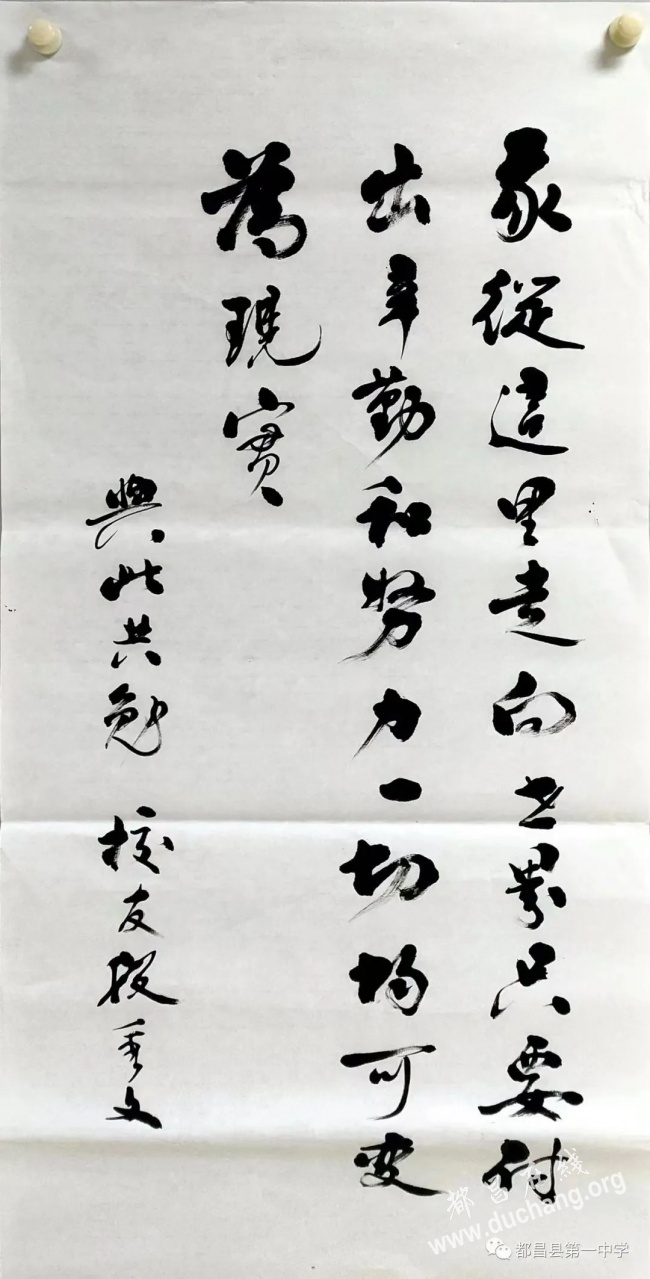 我從這里走向世界只要付
出辛勤和努力一切均可变
為現實
與此共勉 校友段文
都昌在綫
www.duchang.org
都昌县第一中学